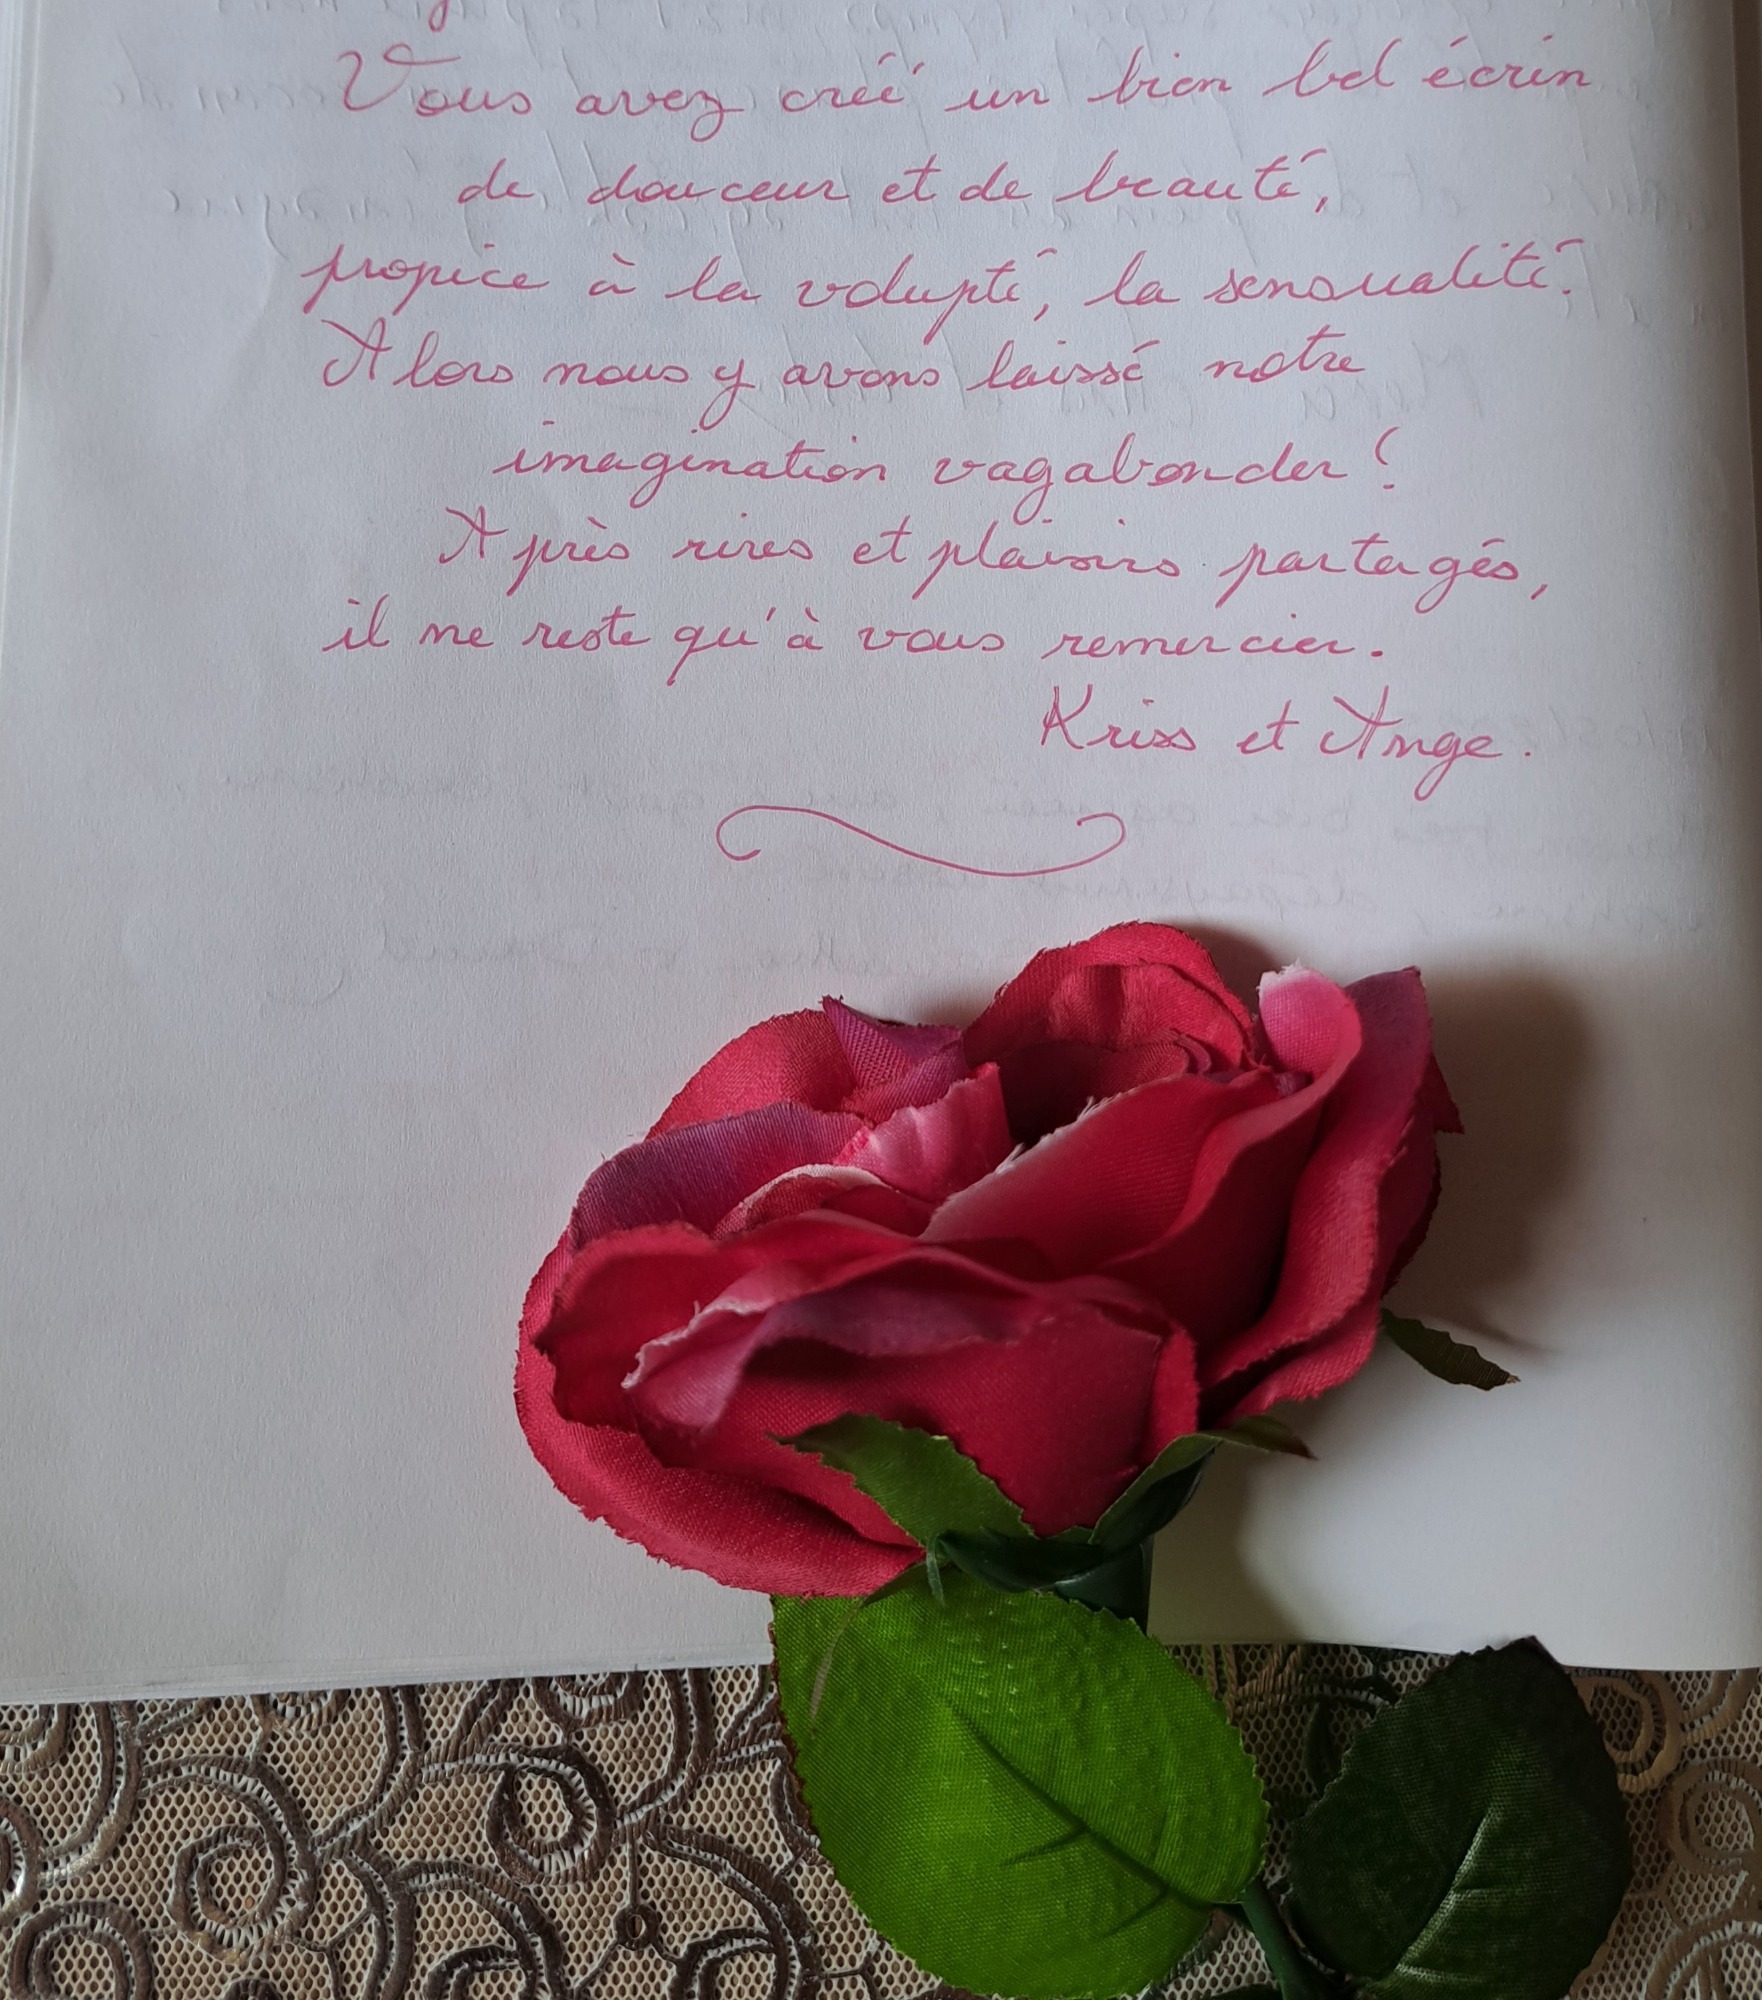 Vous avez créé un bien bel écrin
de douceur et de beauté,
propice à la volupté, la sensualité.
Alors nous y avons laissé notre
imagination vagabonder !
Après rires et plaisirs partagés,
il me reste qu'à vous remercier.
Kriss et Ange.